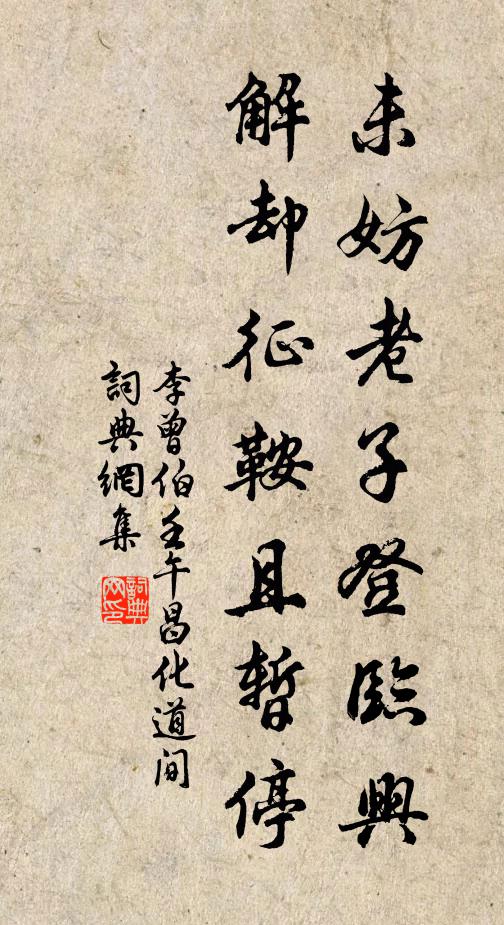 未妨老子登臨興
解却征鞍且暫停
李曾伯壬午昌化道间
詞典網集
詞典
网印